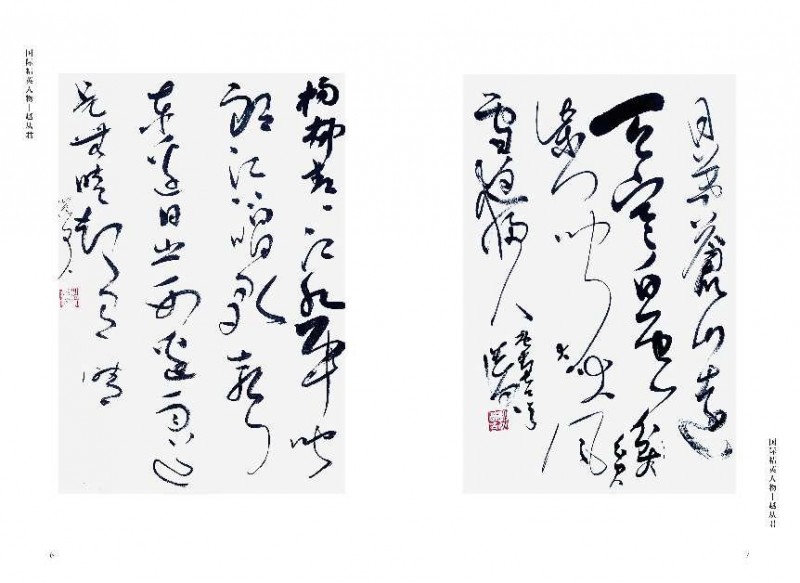 国际精英人物—赵从君
杨柳青青江水平闻
郎江上唱歌声
东边日出西边雨道
是无晴却有晴
6
日暮苍山远
天寒白屋贫
柴门闻犬吠风
雪夜归人
国际精英人物—赵从君
7